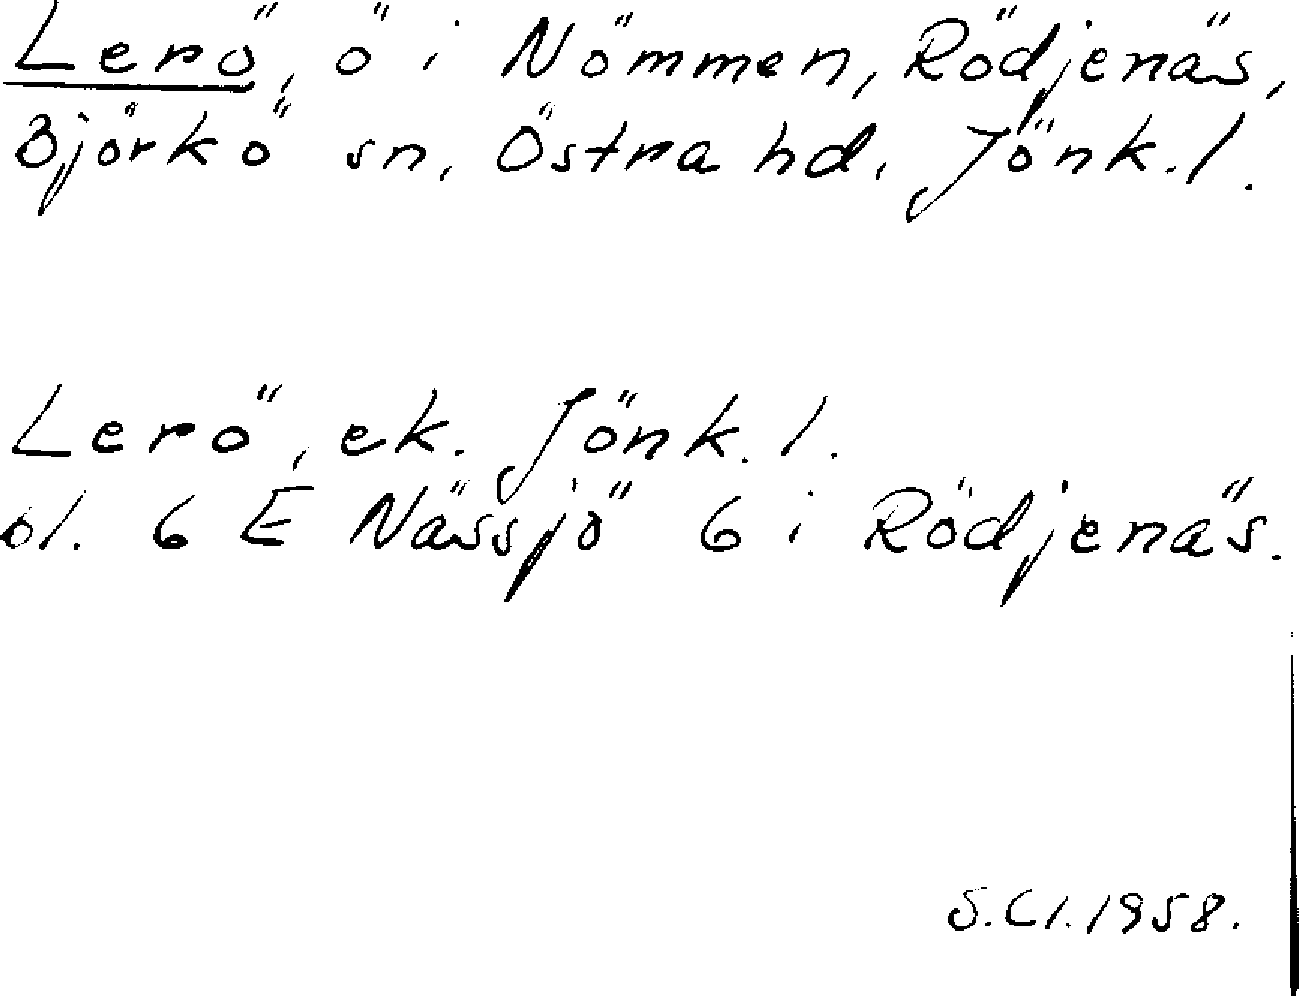 Lerö, ö i Nömmen, Rödjenäs,
Björkö sn, Östra hd, Jönk. l.
Lerö, ek. Jönk. l.
bl. 6 E Nässjö 6 i Rödjenäs.
S.Cl. 1958.